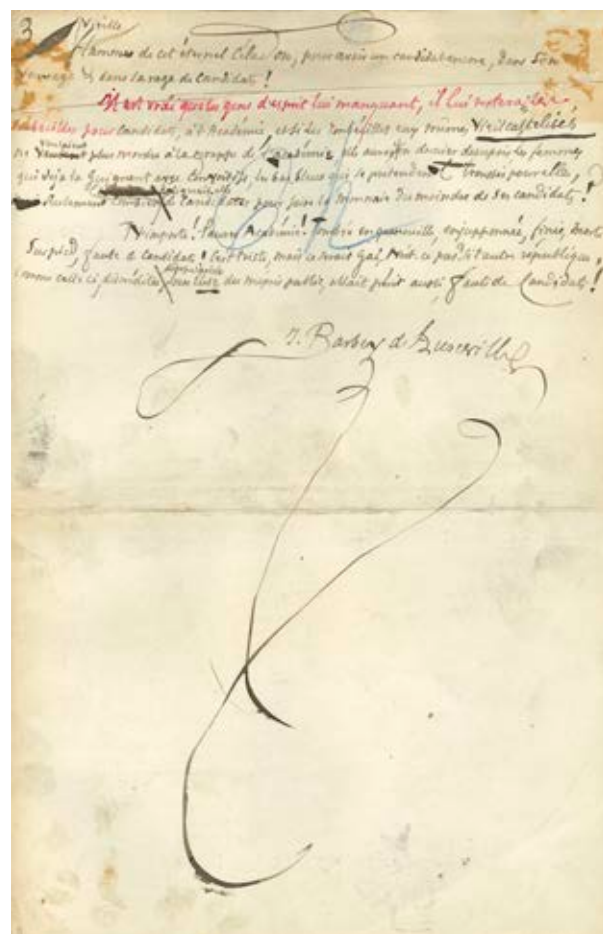 3
Vieille
flamme de cet éternel Céladon, pour avoir un candidat encore, dans son
veuvage & dans la rage de candidats !
Il est vrai que les gens d'esprit lui manquant, il lui restera les
imbéciles pour candidats, à l'Académie, et si les imbéciles eux mêmes
plus mordre à la croupe de l'Académie, elle aura en dernier desespoir les femmes,
qui déja la guignent avec , les bas bleus qui se prétendent
Seulement combien de Candidates pour faire la monnaie du moindre de ses candidats ?
N'importe ! Pauvre Académie ! tombée en quenouille, enjupponnée, finie, morte
Sus pied, faute de Candidats ! C'est triste, mais ce serait gai, n'est ce pas ? si l'autre république,
comme celle ci, discréditée, du mépris public, allait périr aussi faute de Candidats !
J. Barbey d'Aurevilly